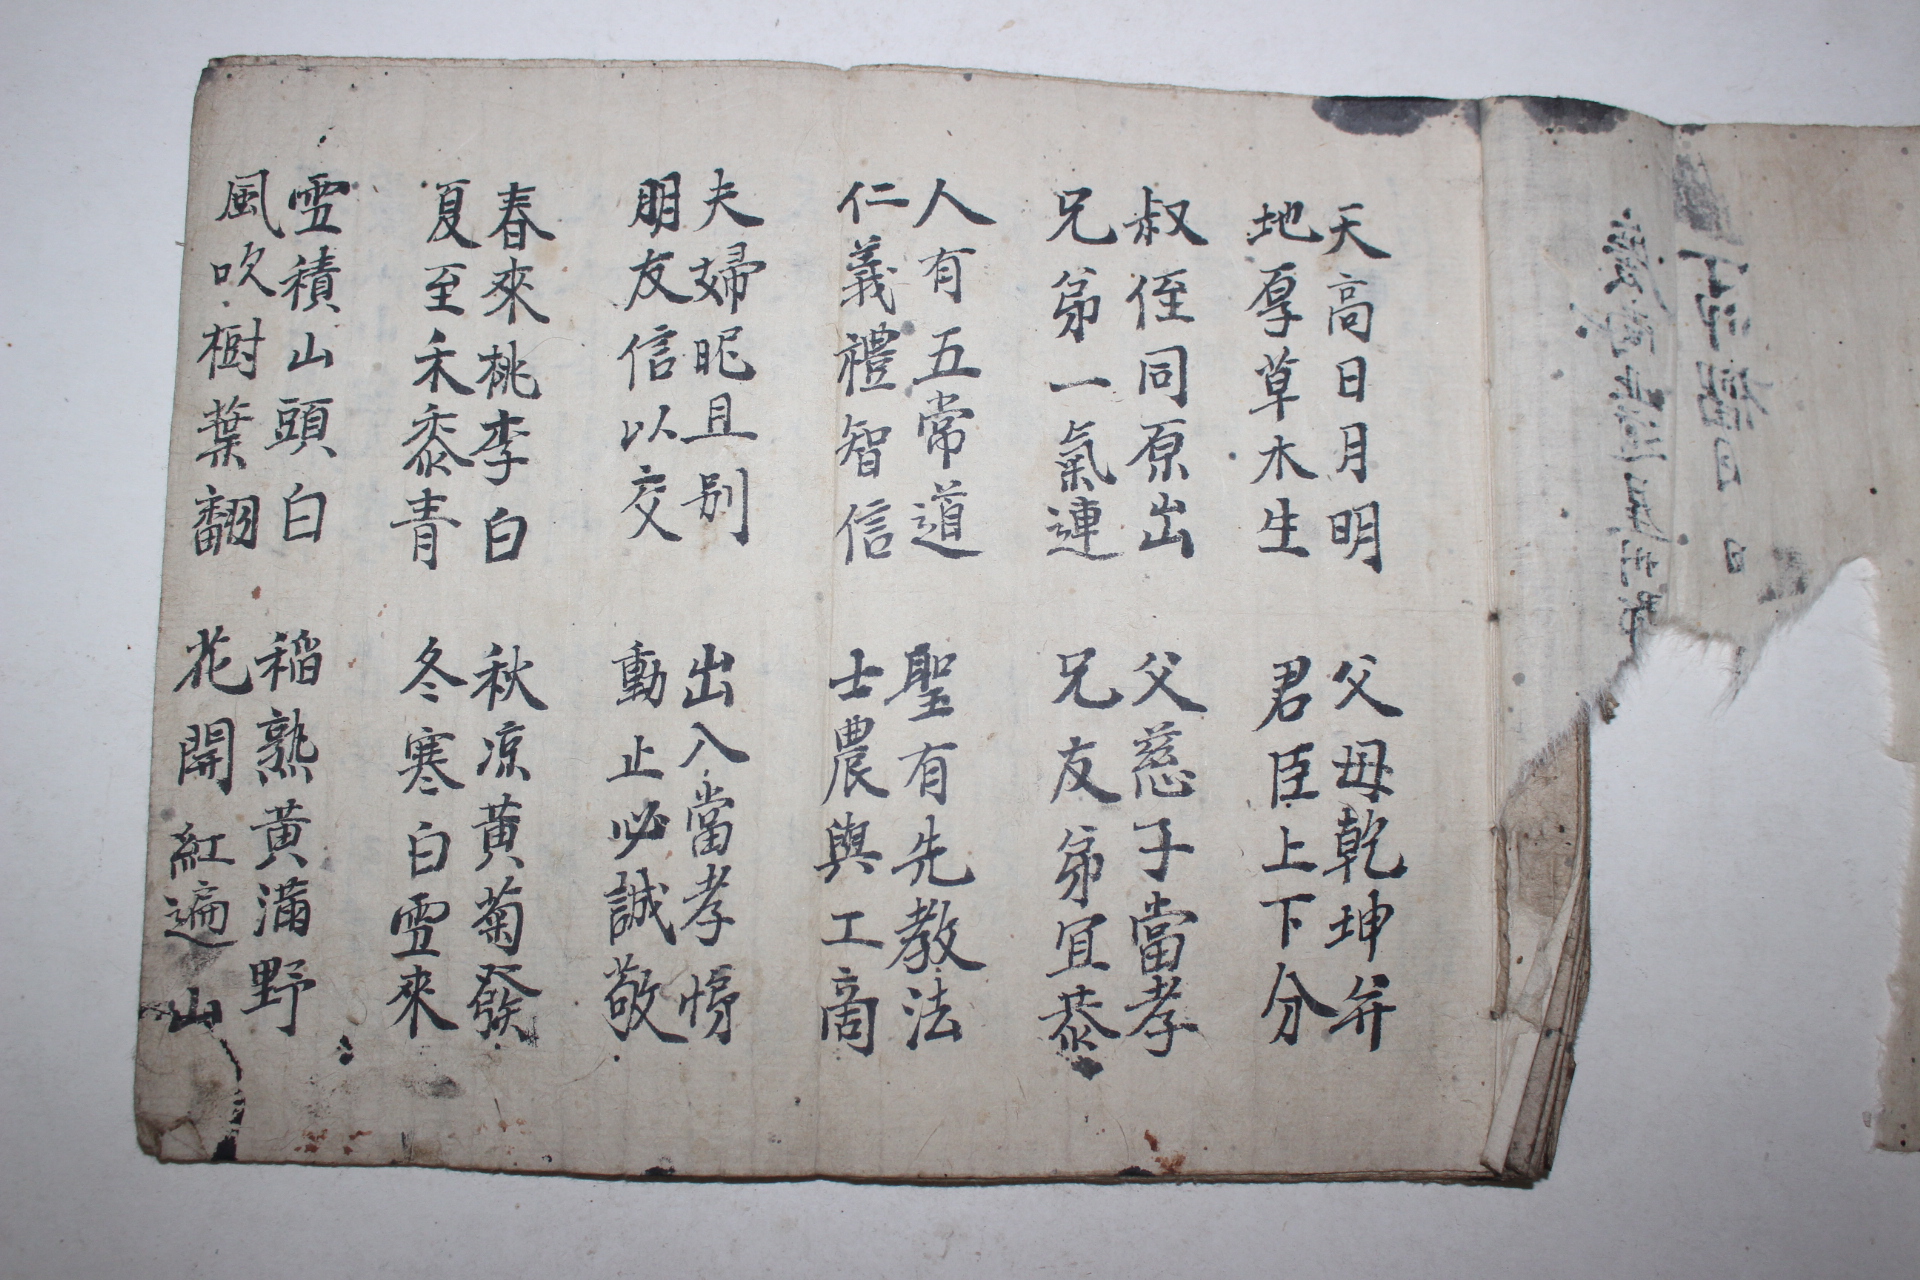 天高日月明 父母乾坤并
地厚草木生 君臣上下分
叔侄同原出 父慈子當孝
兄弟一氣連 兄友弟宜恭
人有五常道 聖有先教法
仁義禮智信 士農與工商
夫婦昵且別 出入當孝悌
朋友信以交 動止必誠敬
春來桃李白 秋凉黄菊發
夏至禾黍青 冬寒白雪來
雪積山頭白 稲熟黄滿野
風吹樹葉翻 花開紅遍山